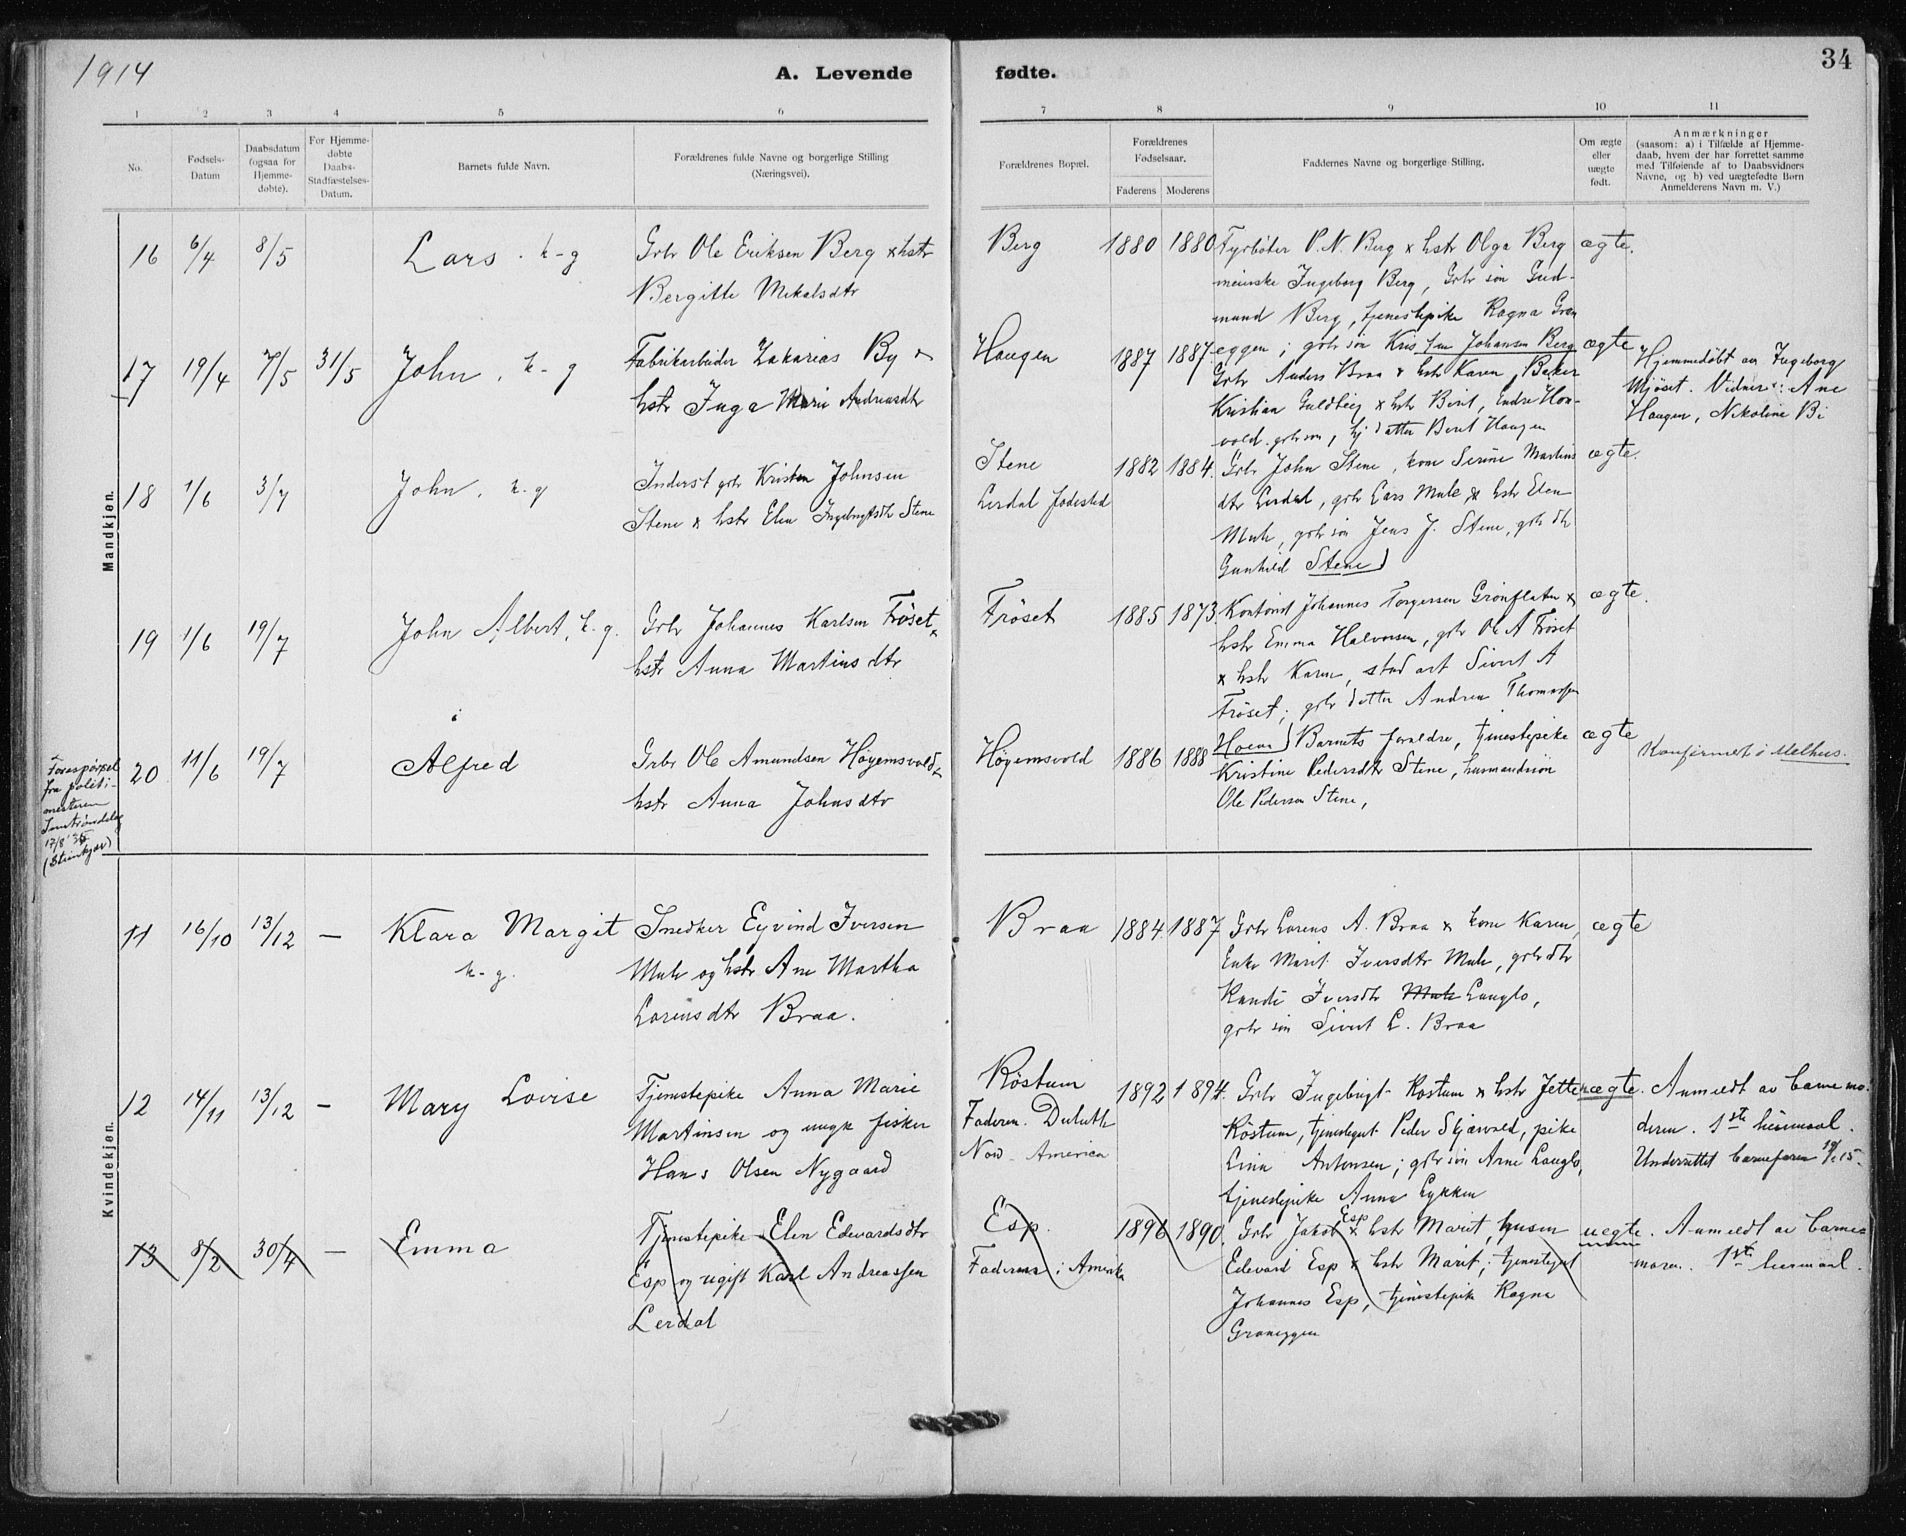 1914
A. Levende fødte.
34
1 2 3 4 5 6 7 8 9 10 11
No.
Fødsels-
Datum
Daabsdatum
(ogsaa for
Hjemme-
døbte).
For Hjemme-
døbte
Daabs-
Stadfæstelses-
Datum.
Barnets fulde Navn.
Forældrenes fulde Navne og borgerlige Stilling
(Næringsvei).
Forældrenes Bopæl.
Forældrenes
Fødselsaar.
Faderens Moderens
Faddernes Navne og borgerlige Stilling.
Om ægte
eller
uægte
født.
Anmærkninger
(saasom: a) i Tilfælde af Hjemme-
daab, hvem der har forrettet samme
med Tilføiende af to Daabsvidners
Navne, og b) ved uægtefødte Børn
Anmelderens Navn m. V.)
Mandkjøn.
16 6/4 8/5 Lars. k-g
Grbr Ole Eriksen Berg x hstr
Bergitte Mekalsdtr
Berg 1880 1880
Fyrbøter P. N. Berg x hstr Olga Berg
Ingeborg Berg, Grbr søn Gud-
mund Berg, tjenestepike Ragna Gran
eggen; gbr søn Johansen Berg
ægte.
17 19/4 7/5 31/5 John. k-g
Fabrikarbeider Zakarias By x
hstr Inga Marie Andreasdtr
Haugen 1887 1887
Grbr Anders Braa x hstr Karen, Baker
Kristian Guldberg x hstr Berit, Endre Hon-
vold grbr søn, datter Berit Haugen
ægte
Hjemmedøbt av Ingeborg
Mjøset. Vidner: Ane
Haugen, Nikoline Bi
18 1/6 3/7 John. k-g
Inderst gbr Kristen Johnsen
Stene x hstr Elen Ingebrigtsdtr Stene
Stene
Lerdal fødested
1882 1884
Grbr John Stene, kone Serine Martins
dtr Lerdal, gbr Lars Mule x hstr Elen
Mule, gbr søn Jens J. Stene, gbr dtr
Gunhild Stene
ægte.
19 1/6 19/7 John Albert, k-g.
Grbr Johannes Karlsen Frøset x
hstr Anna Martinsdtr
Frøset 1885 1873
Kontorist Johannes Torgersen Grønflaten x
hstr Emma Halvorsen, gbr Ole A Frøset
x hstr Karen, stud art Sivert A
Frøset; gbr datter Andrea Thomassen
Hoem
ægte.
20 11/6 19/7 Alfred
Grbr Ole Amundsen Høyemsvold x
hstr Anna Johnsdtr
Høyemsvold 1886 1888
Barnets foreldre, tjenestepike
Kristine Pedersdtr Stene, husmandssøn
Ole Pederson Stene,
ægte
Konfirmert i Melhus.
Forespørsel
fra politi-
mesteren
Inntrøndelag
17/8
(Steinkjær)
Kvindekjøn.
11 16/10 13/12 — Klara Margit
k-g.
Snedker Eyvind Iversen
Mule og hstr Ane Martha
Lorensdtr Braa.
Braa 1884 1887
Grbr Lorens A. Braa x kone Karen,
Enke Marit Iversdtr Mule, gbr dtr
Randi Iversdtr Mule Langlo,
gbr søn Sivert L. Braa
ægte
12 14/11 13/12 — Mary Lovise
Tjenestepike Anna Marie
Martinsen og ungk fisker
Hans Olsen Nygaard
Røstum
Faderen. Duluth
Nord-America
1892 1894
Grbr Ingebrigt Røstum x hstr Jette
Røstum, tjenestegut Peder Skjervold, pike
Lina Antonsen; gbr søn Arne Langlo,
tjenestepike Anna Lykken
uægte.
Anmeldt av barnemo-
deren. 1ste leiermaal.
Underrettet barnefaren 19/1 15.
13 8/2 30/4 — Emma
Tjenestepike Elen Edevardsdtr
Esp og ugift Karl Andreassen
Lerdal
Esp.
Faderen i Amerika
1896 1890
Grbr Jakob Esp x hstr Marit, husm
Edevard Esp x hstr Marit; tjenestegut
Johannes Esp, tjenestepike Ragna
Graneggen
uegte.
Anmeldt av barne-
moren. 1ste leiermaal.